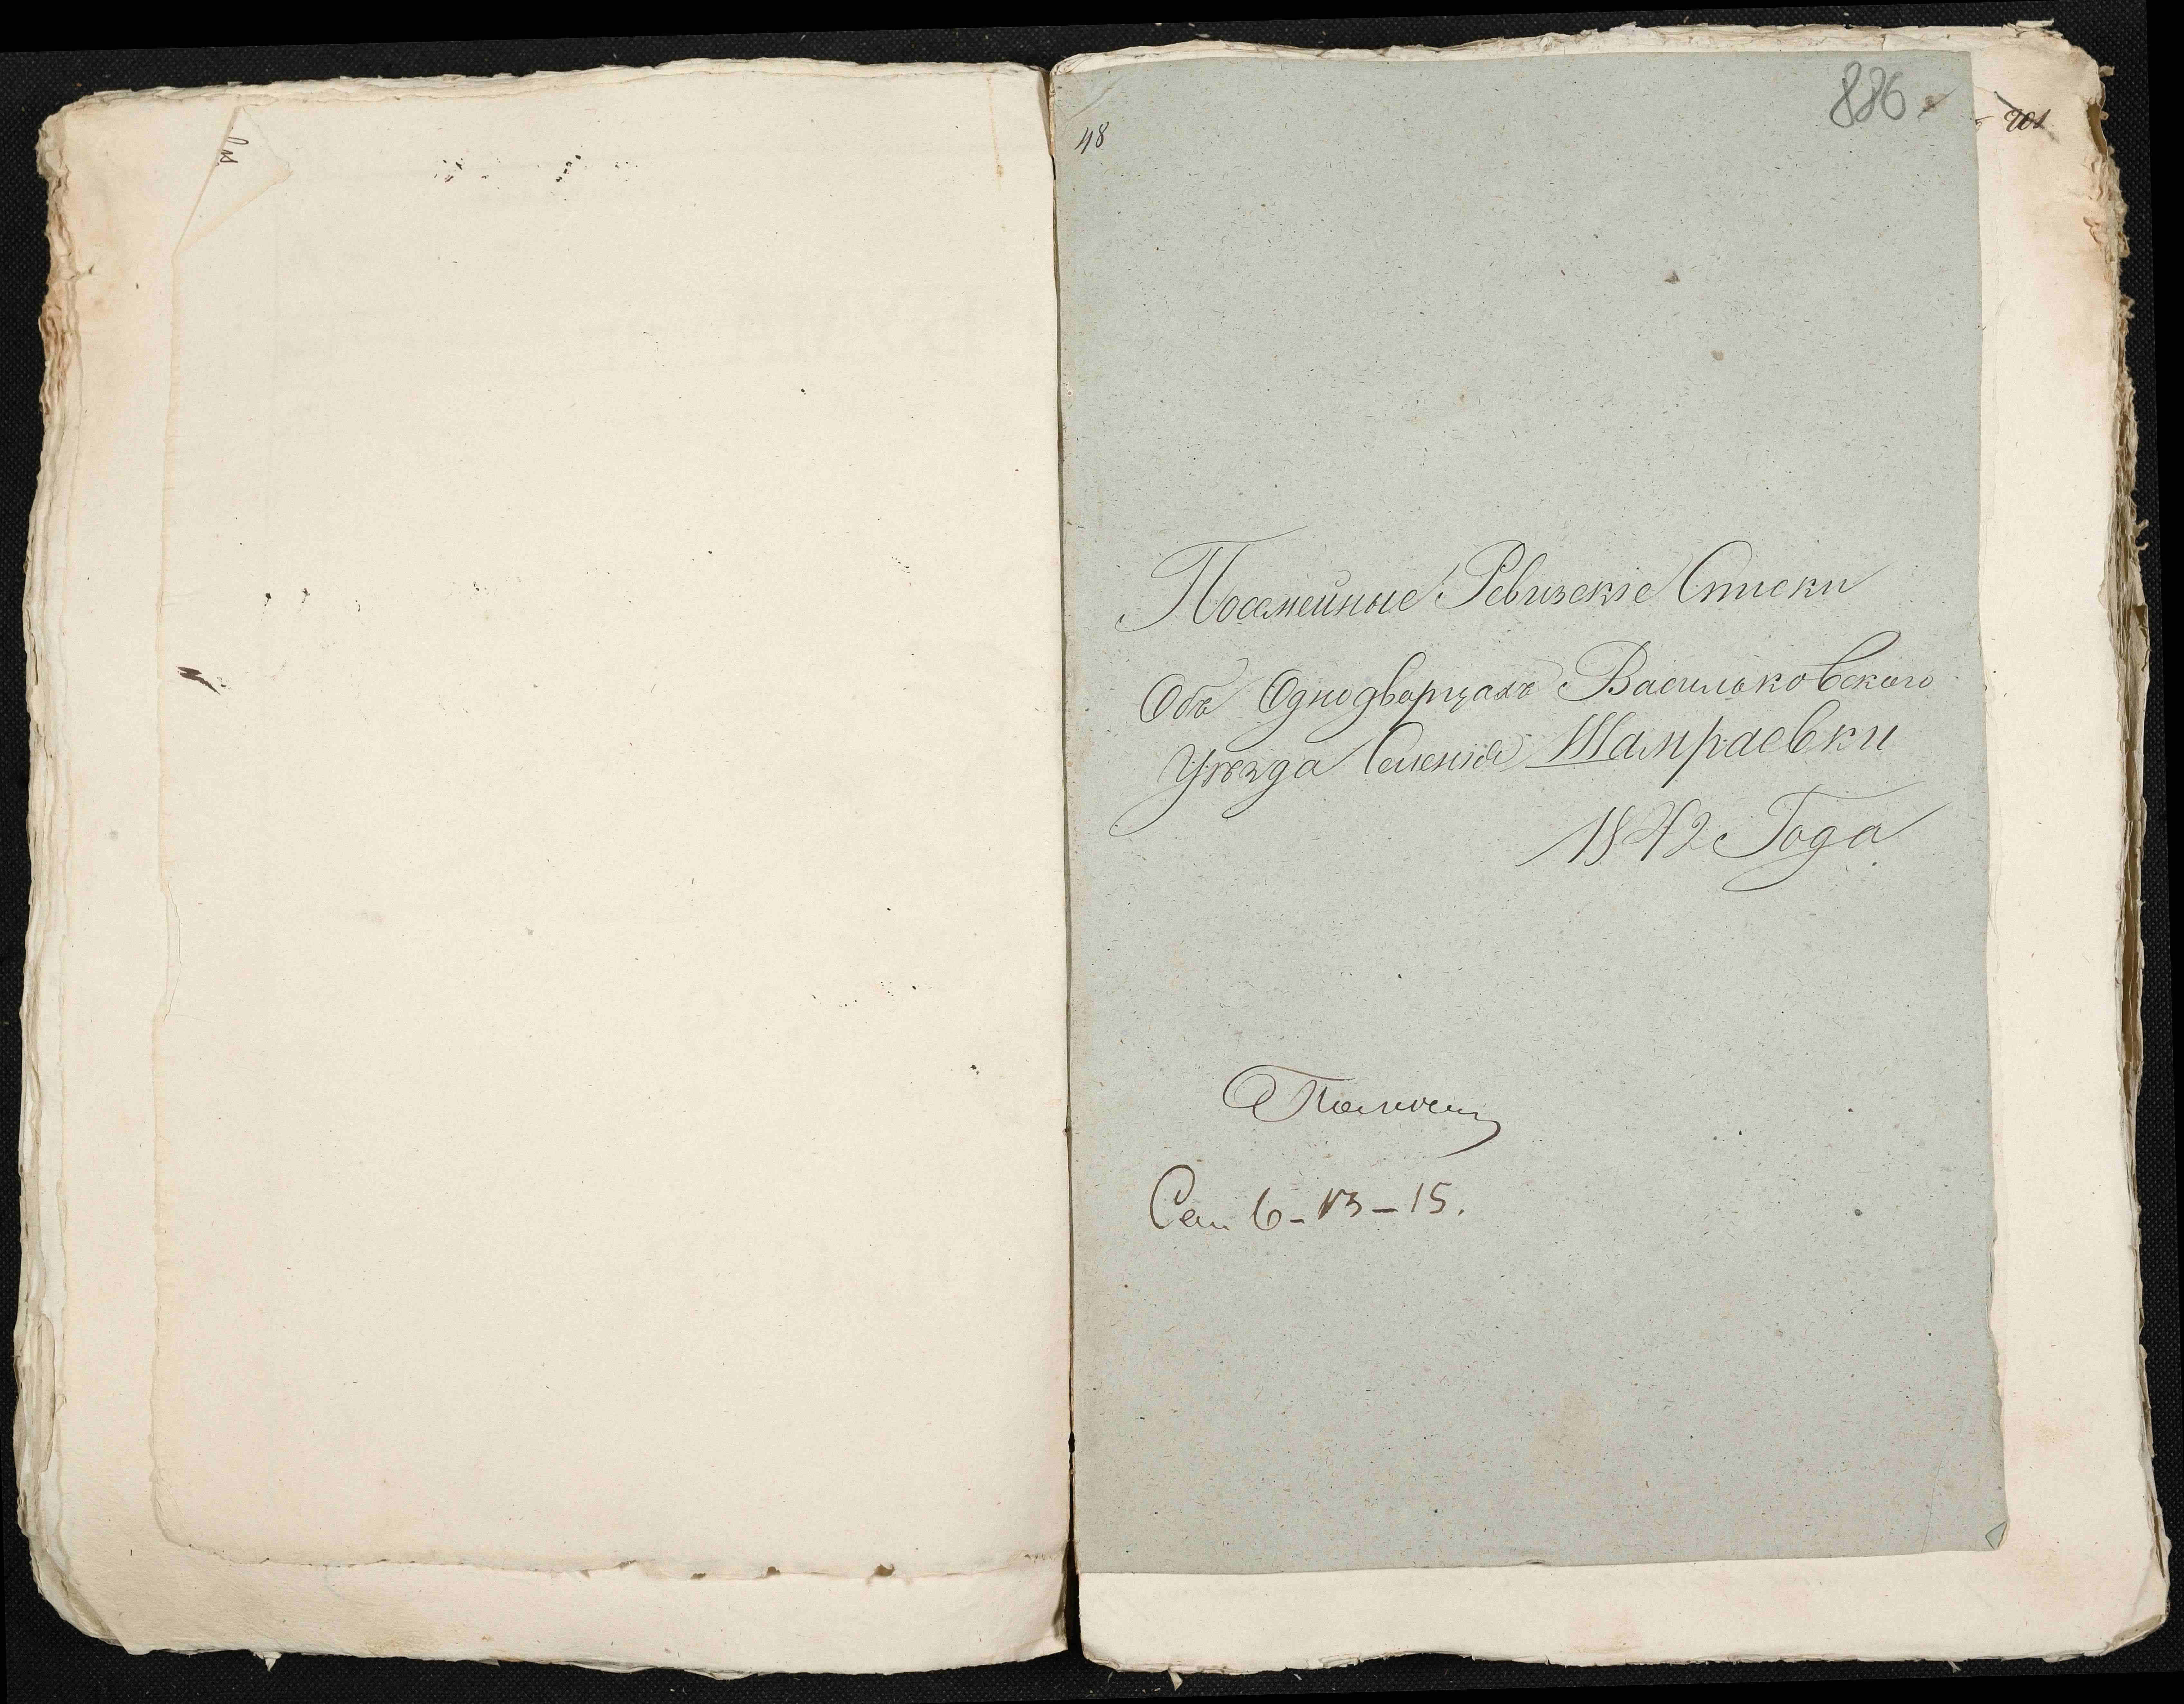 48
886
201
Посемейные Ревизскіе Списки
Объ Однодворцахъ Васильковскаго
Уѣзда Селенія Шамраевки
1842 Года
Сем 6 - 13 - 15.